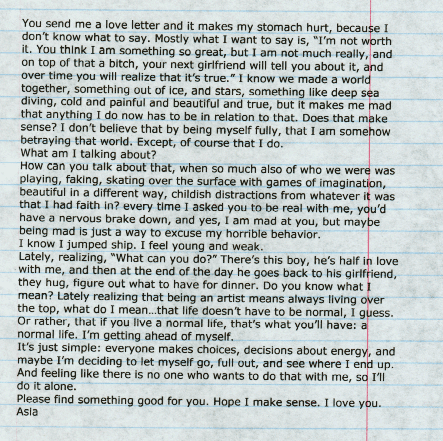 You send me a love letter and it makes my stomach hurt, because I
don't know what to say. Mostly what I want to say is, "I'm not worth
it. You think I am something so great, but I am not much really, and
on top of that a bitch, your next girlfriend will tell you about it, and
over time you will realize that it's true." I know we made a world
together, something out of ice, and stars, something like deep sea
diving, cold and painful and beautiful and true, but it makes me mad
that anything I do now has to be in relation to that. Does that make
sense? I don't believe that by being myself fully, that I am somehow
betraying that world. Except, of course that I do.
What am I talking about?
How can you talk about that, when so much also of who we were was
playing, faking, skating over the surface with games of imagination,
beautiful in a different way, childish distractions from whatever it was
that I had faith in? every time I asked you to be real with me, you'd
have a nervous brake down, and yes, I am mad at you, but maybe
being mad is just a way to excuse my horrible behavior.
I know I jumped ship. I feel young and weak.
Lately, realizing, "What can you do?" There's this boy, he's half in love
with me, and then at the end of the day he goes back to his girlfriend,
they hug, figure out what to have for dinner. Do you know what I
mean? Lately realizing that being an artist means always living over
the top, what do I mean...that life doesn't have to be normal, I guess.
Or rather, that if you live a normal life, that's what you'll have: a
normal life. I'm getting ahead of myself.
It's just simple: everyone makes choices, decisions about energy, and
maybe I'm deciding to let myself go, full out, and see where I end up.
And feeling like there is no one who wants to do that with me, so I'll
do it alone.
Please find something good for you. Hope I make sense. I love you.
Asia